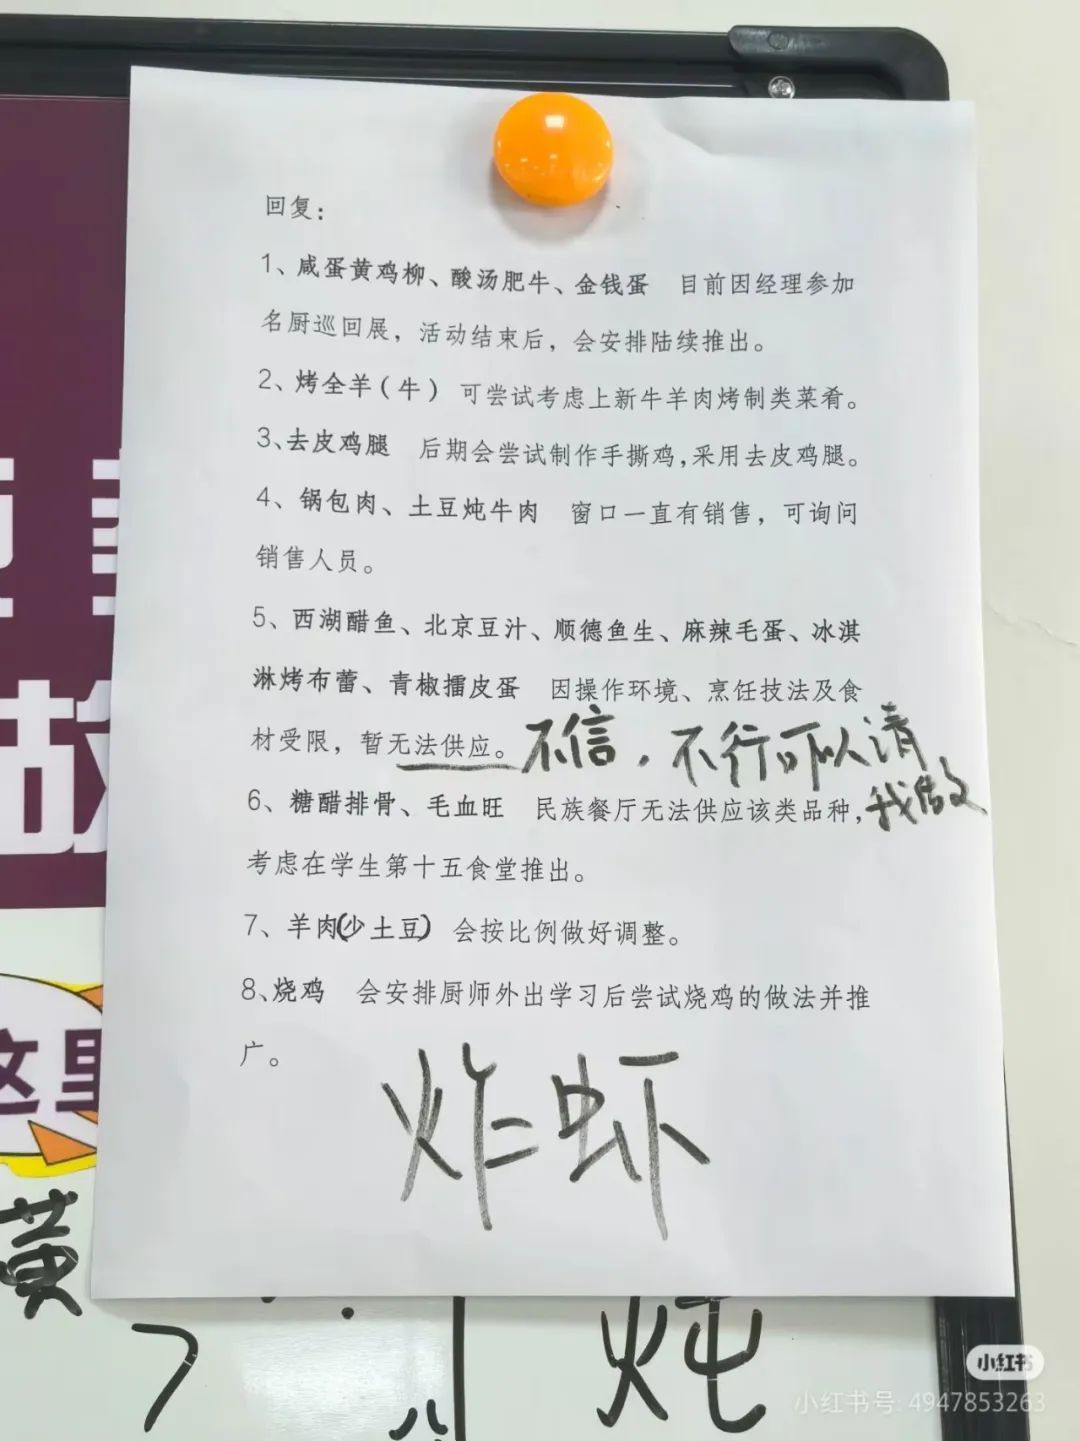 回复：
1、咸蛋黄鸡柳、酸汤肥牛、金钱蛋 目前因经理参加
名厨巡回展，活动结束后，会安排陆续推出。
2、烤全羊（牛） 可尝试考虑上新牛羊肉烤制类菜肴。
3、去皮鸡腿 后期会尝试制作手撕鸡，采用去皮鸡腿。
4、锅包肉、土豆炖牛肉 窗口一直有销售，可询问
销售人员。
5、西湖醋鱼、北京豆汁、顺德鱼生、麻辣毛蛋、冰淇
淋烤布蕾、青椒擂皮蛋 因操作环境、烹饪技法及食
材受限，暂无法供应。不信，不行可以清
我做
6、糖醋排骨、毛血旺 民族餐厅无法供应该类品种，
考虑在学生第十五食堂推出。
7、羊肉(少土豆) 会按比例做好调整。
8、烧鸡 会安排厨师外出学习后尝试烧鸡的做法并推
广。
炸虾
这里
黄
炖
小红书
小红书号: 4947853263